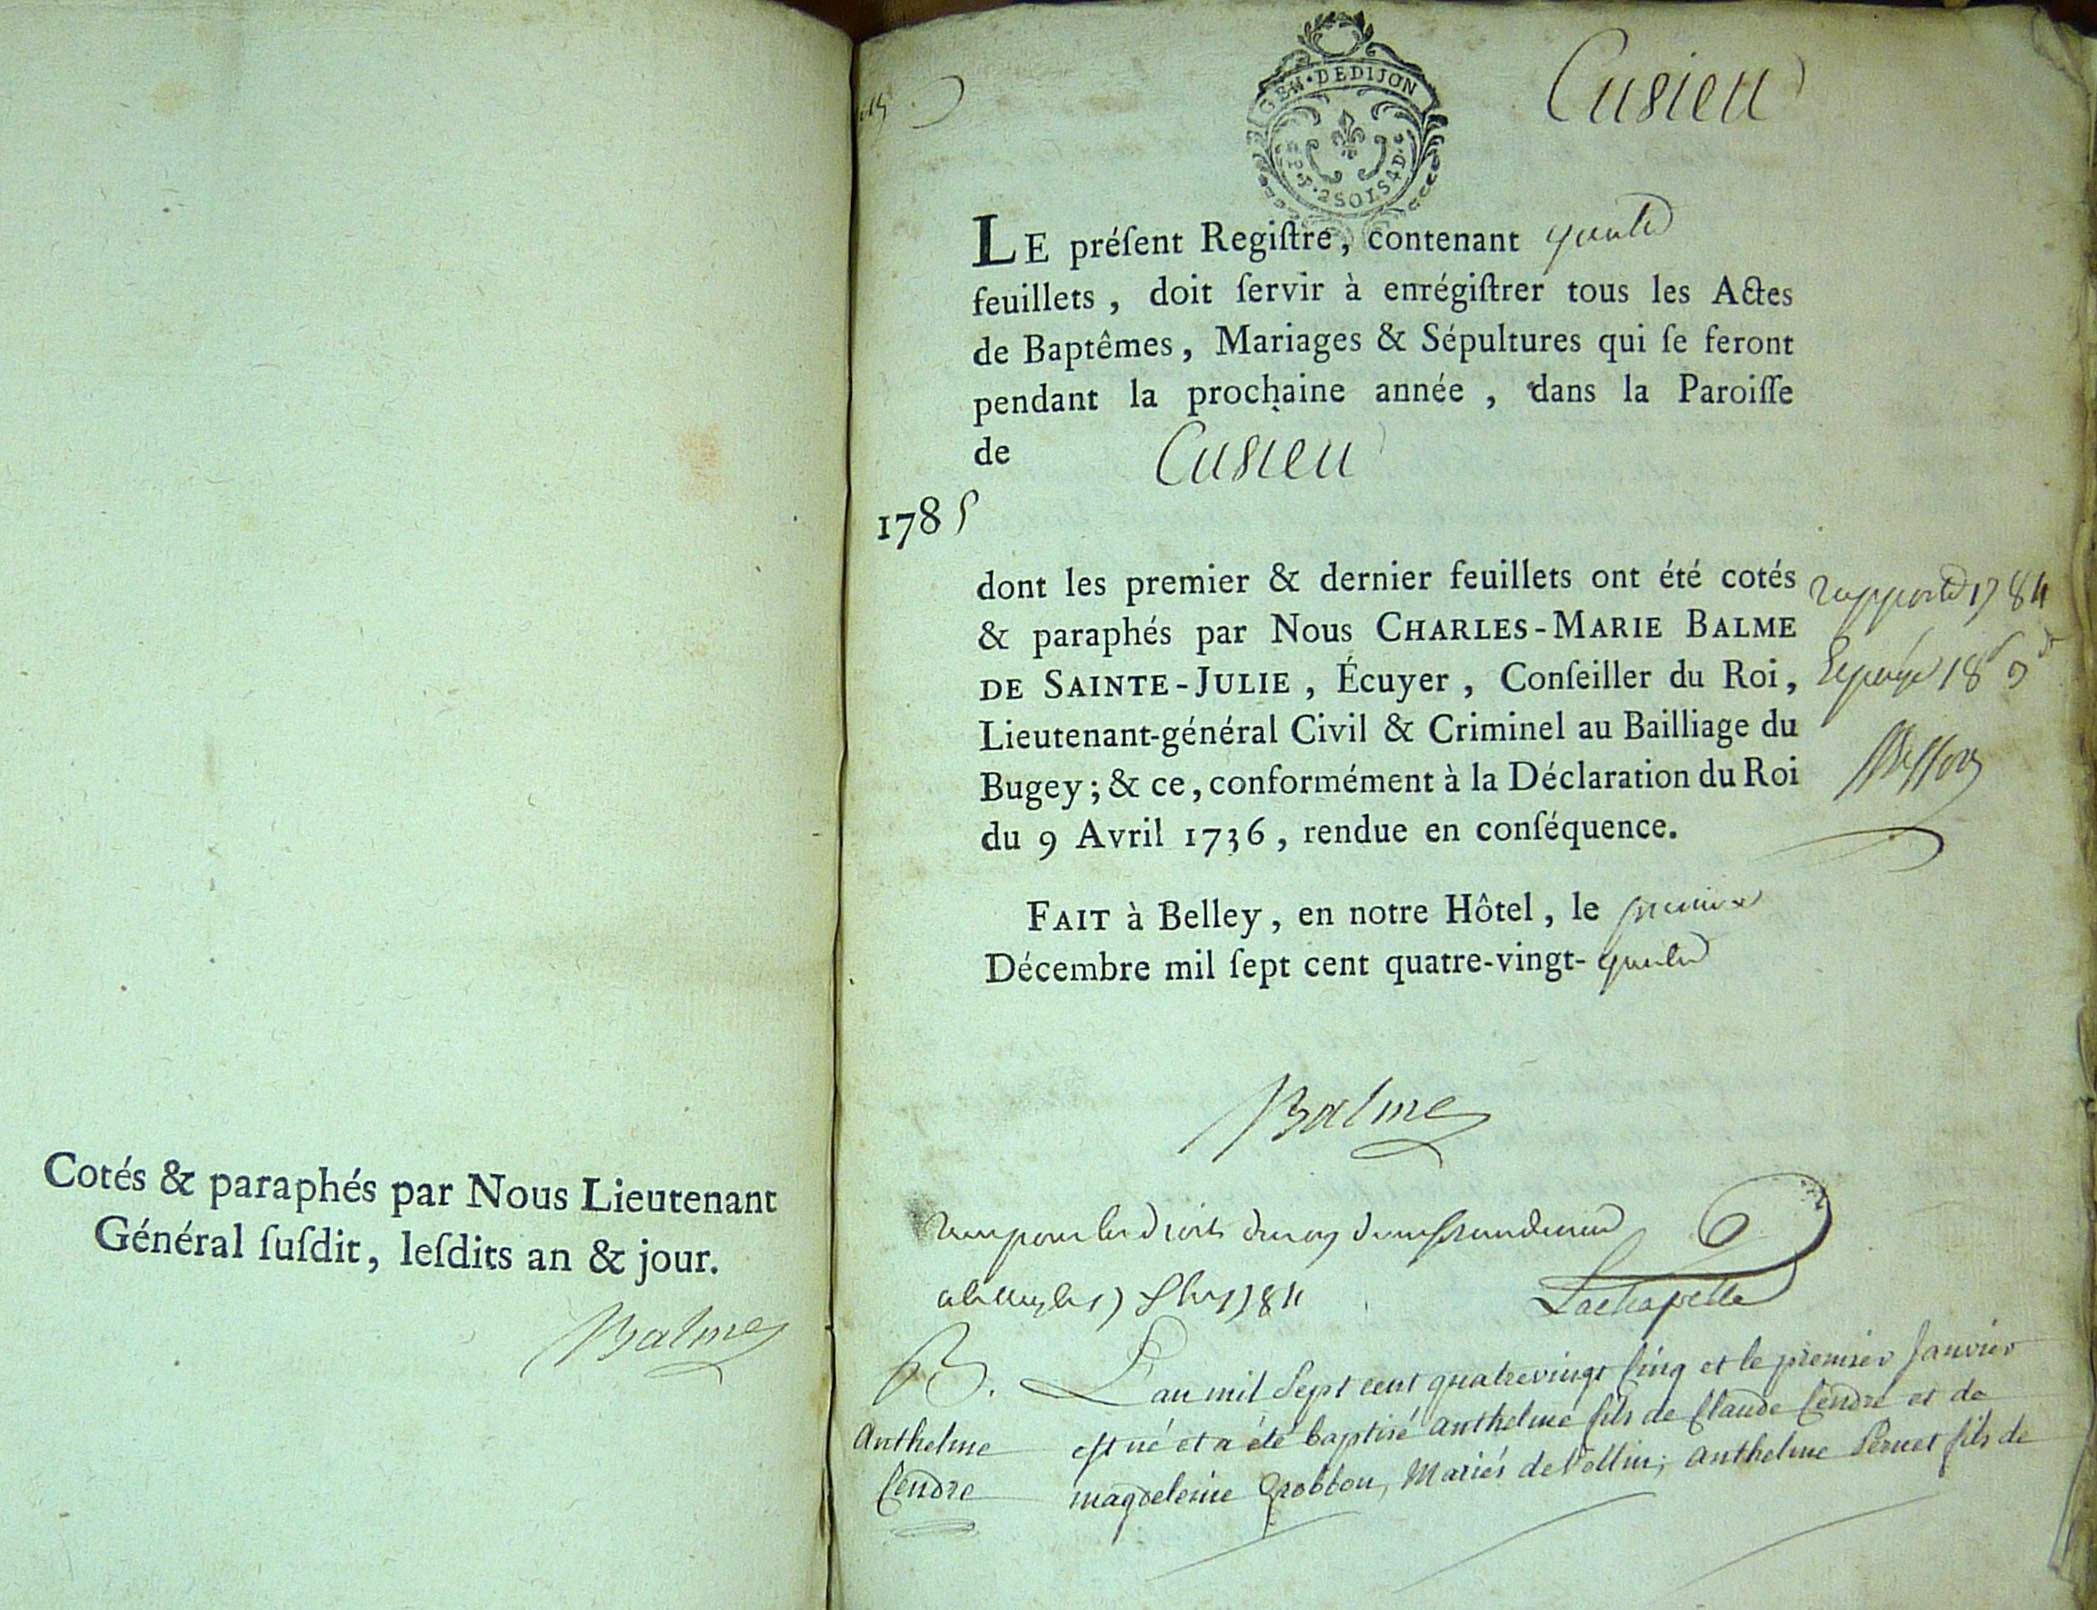 Cotés & paraphés par Nous Lieutenant
Général ſuſdit, leſdits an & jour.
Balme
GEN·DEDIJON
2SOLS4D.
Cusieu
LE préſent Regiſtre, contenant quatre
feuillets, doit ſervir à enrégiſtrer tous les Actes
de Baptêmes, Mariages & Sépultures qui ſe feront
pendant la prochaine année, dans la Paroiſſe
de Cusieu
1785
dont les premier & dernier feuillets ont été cotés
& paraphés par Nous CHARLES-MARIE BALME
DE SAINTE-JULIE, Écuyer, Conſeiller du Roi,
Lieutenant-général Civil & Criminel au Bailliage du
Bugey; & ce, conformément à la Déclaration du Roi
du 9 Avril 1736, rendue en conſéquence.
rapporté 1784
FAIT à Belley, en notre Hôtel, le premier
Décembre mil ſept cent quatre-vingt-quatre
Balme
Lachapelle
B.
Anthelme
Cendre
L'an mil Sept cent quatrevingt Cinq et le premier Janvier
est né et a été baptisé Anthelme fils de Claude Cendre et de
magdeleine Grobbon, Mariés de Vollin; Anthelme Pernet fils de